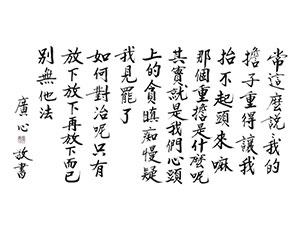 常這麼說我的
擔子重得讓我
抬不起頭來嘛
那個重擔是什麼呢
其實就是我們心頭
上的貪瞋痴慢疑
我見罷了
如何對治呢只有
放下放下再放下而已
別無他法
廣心敬書